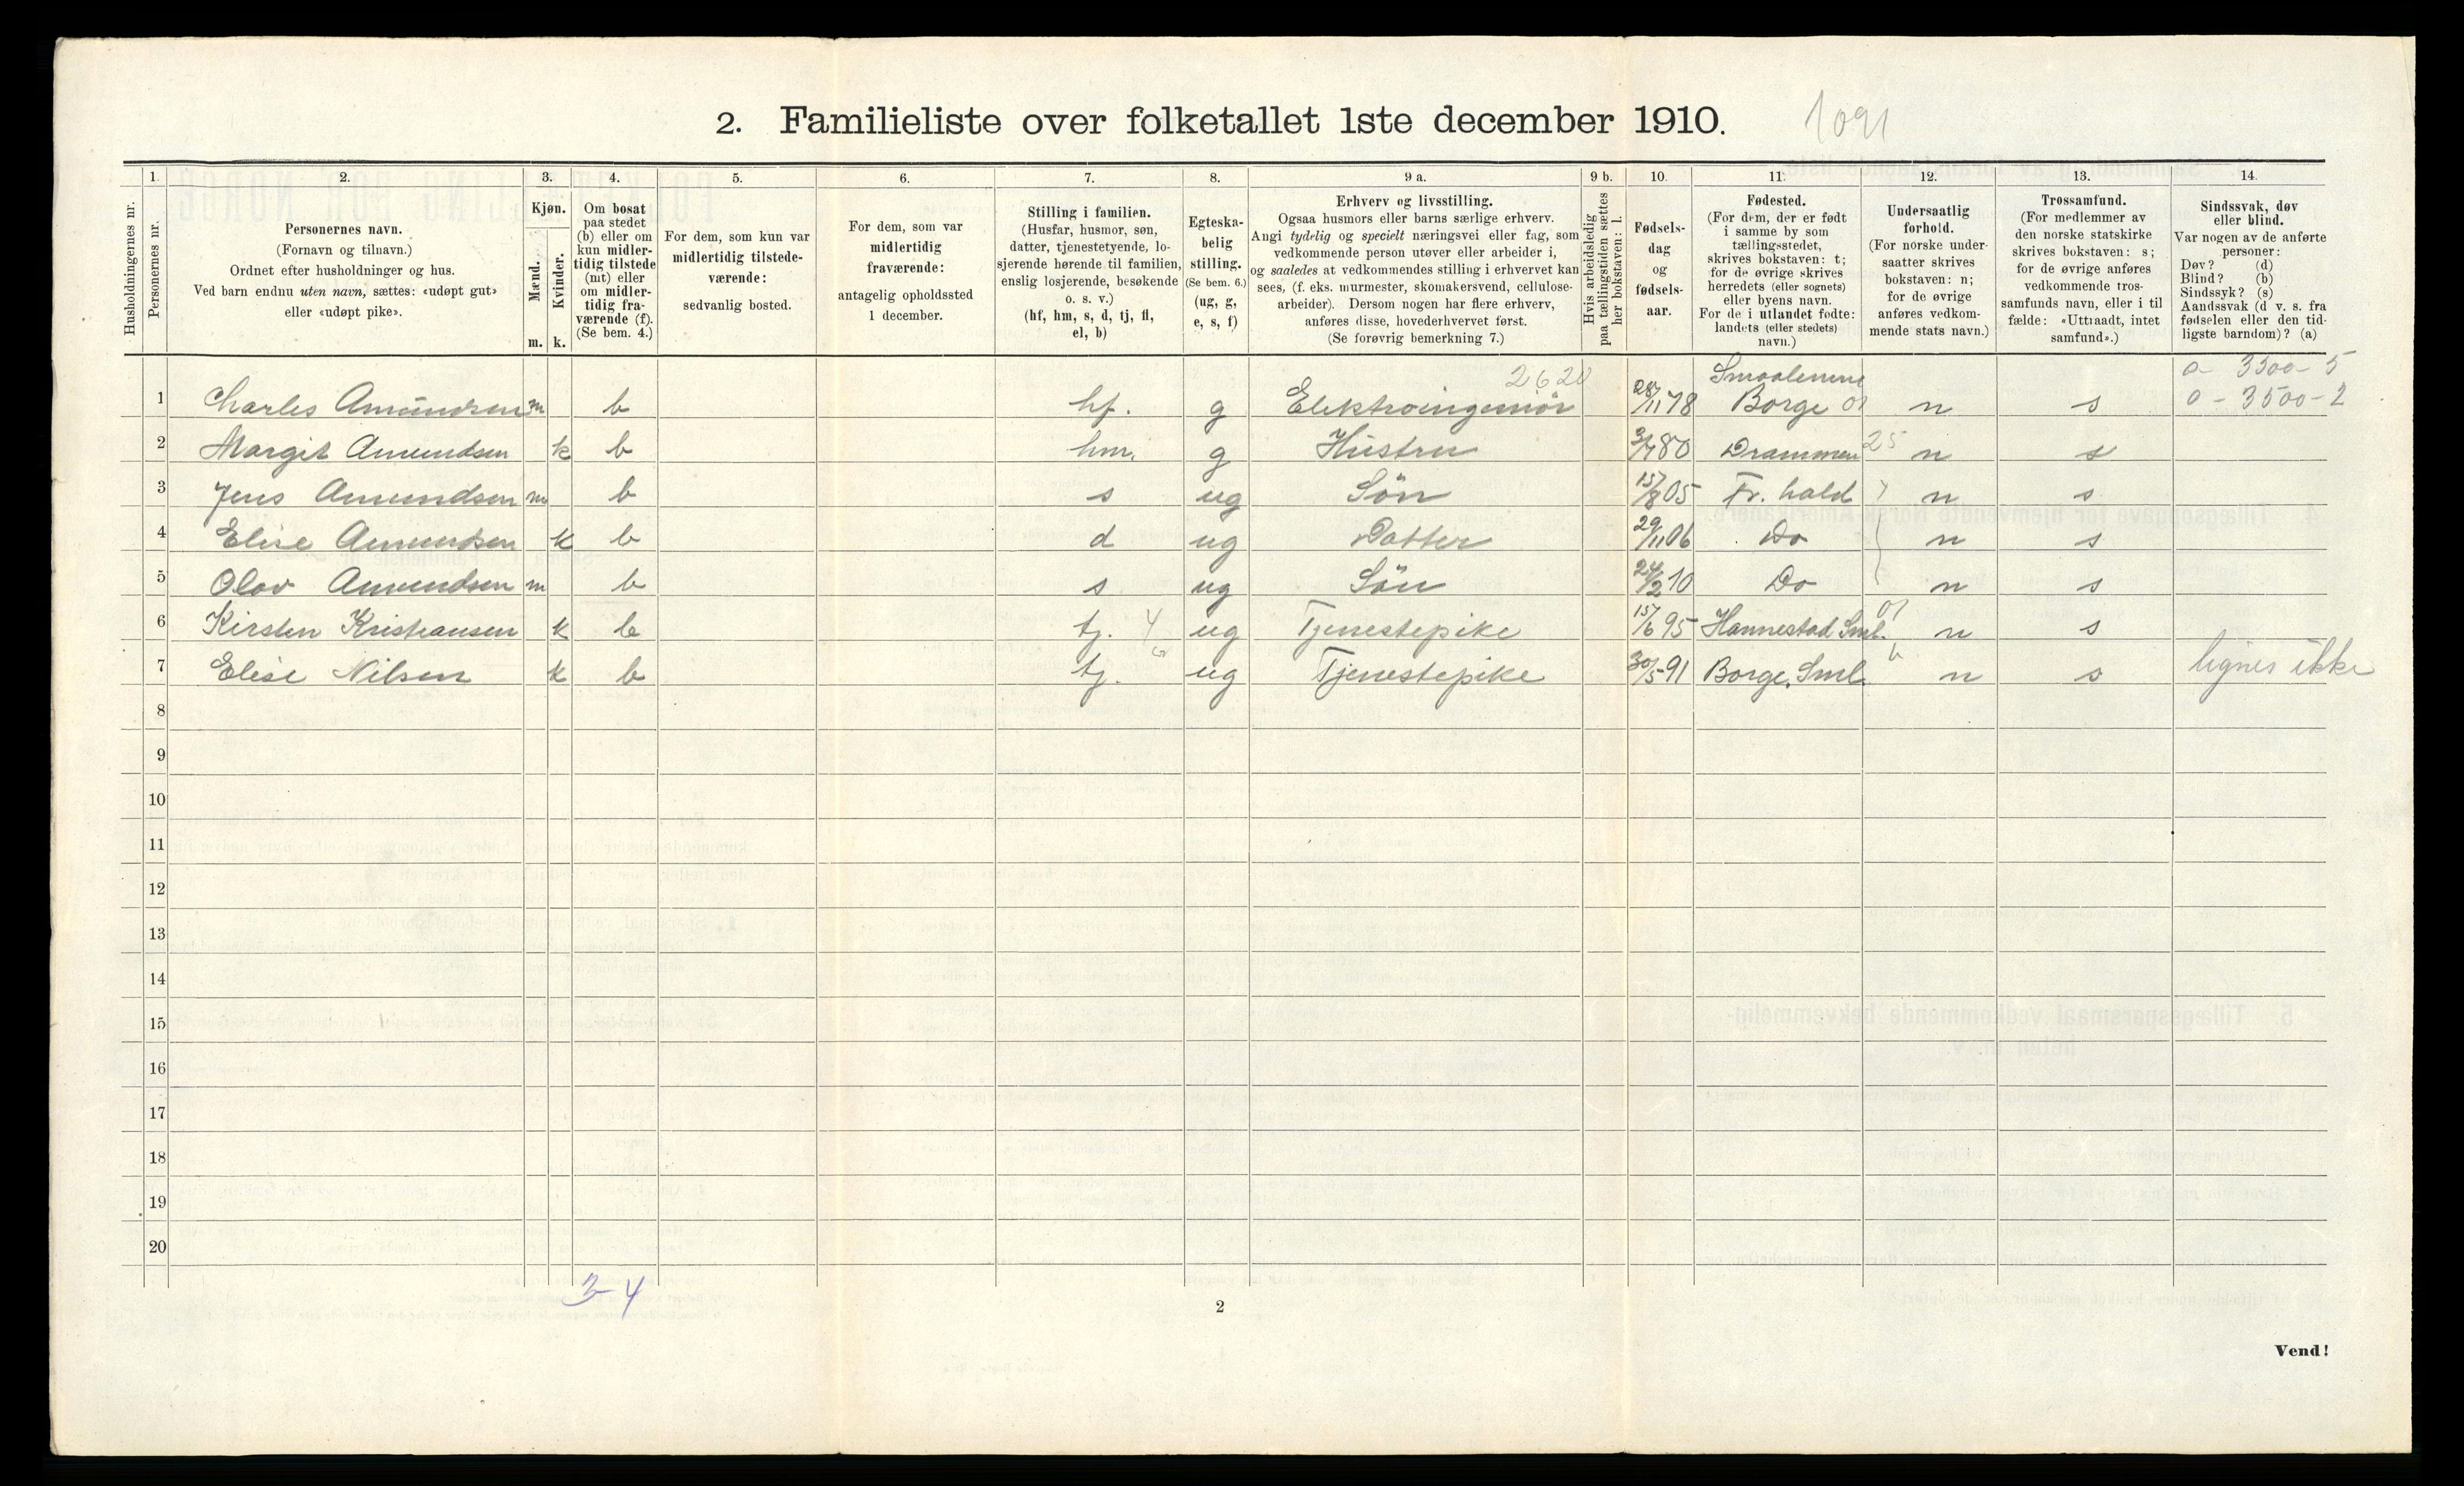 2. Familieliste over folketallet 1ste december 1910. 1091
Husholdningernes nr.
1. Personernes nr.
2. Personernes navn.
(Fornavn og tilnavn.)
Ordnet efter husholdninger og hus.
Ved barn endnu uten navn, sættes: «udøpt gut»
eller «udøpt pike».
3. Kjøn.
Mænd. m.
Kvinder. k.
4. Om bosat
paa stedet
(b) eller om
kun midler-
tidig tilstede
(mt) eller
om midler-
tidig fra-
værende (f).
(Se bem. 4.)
5. For dem, som kun var
midlertidig tilstede-
værende:
sedvanlig bosted.
6. For dem, som var
midlertidig
fraværende:
antagelig opholdssted
1 december.
7. Stilling i familien.
(Husfar, husmor, søn,
datter, tjenestetyende, lo-
sjerende hørende til familien,
enslig losjerende, besøkende
o. s. v.)
(hf, hm, s, d, tj, fl,
el, b)
8. Egteska-
belig
stilling.
(Se bem. 6.)
(ug, g,
e, s, f)
9 a. Erhverv og livsstilling.
Ogsaa husmors eller barns særlige erhverv.
Angi tydelig og specielt næringsvei eller fag, som
vedkommende person utøver eller arbeider i,
og saaledes at vedkommendes stilling i erhvervet kan
sees, (f. eks. murmester, skomakersvend, cellulose-
arbeider). Dersom nogen har flere erhverv,
anføres disse, hovederhvervet først.
(Se forøvrig bemerkning 7.)
9 b. Hvis arbeidsledig
paa tællingstiden sættes
her bokstaven: l.
10. Fødsels-
dag
og
fødsels-
aar.
11. Fødested.
(For dem, der er født
i samme by som
tællingsstedet,
skrives bokstaven: t;
for de øvrige skrives
herredets (eller sognets)
eller byens navn.
For de i utlandet fødte:
landets (eller stedets)
navn.)
12. Undersaatlig
forhold.
(For norske under-
saatter skrives
bokstaven: n;
for de øvrige
anføres vedkom-
mende stats navn.)
13. Trossamfund.
(For medlemmer av
den norske statskirke
skrives bokstaven: s;
for de øvrige anføres
vedkommende tros-
samfunds navn, eller i til
fælde: «Uttraadt, intet
samfund».)
14. Sindssvak, døv
eller blind.
Var nogen av de anførte
personer:
Døv? (d)
Blind? (b)
Sindssyk? (s)
Aandssvak (d v. s. fra
fødselen eller den tid-
ligste barndom)? (a)
2620 Smaalenene o - 3500 - 5
1 Charles Amundsen m b hf. g Elektroingeniør 28/11 78 Borge 01 n s o - 3500 - 2
2 Margit Amundsen k b hm. g Hustru 3/7 80 Drammen 25 n s
3 Jens Amundsen m b s ug Søn 15/8 05 Fr. hald n s
4 Elise Amundsen k b d ug Datter 29/11 06 Do n s
5 Olav Amundsen m b s ug Søn 24/2 10 Do n s
6 Kirsten Kristiansen k b tj. 4 ug Tjenestepike 15/6 95 Hannestad Sml. 01 n s
7 Elise Nilsen k b tj. ug Tjenestepike 30/5 91 Borge, Sml. " n s lignes ikke
8
9
10
11
12
13
14
15
16
17
18
19
20
3-4
2
Vend!